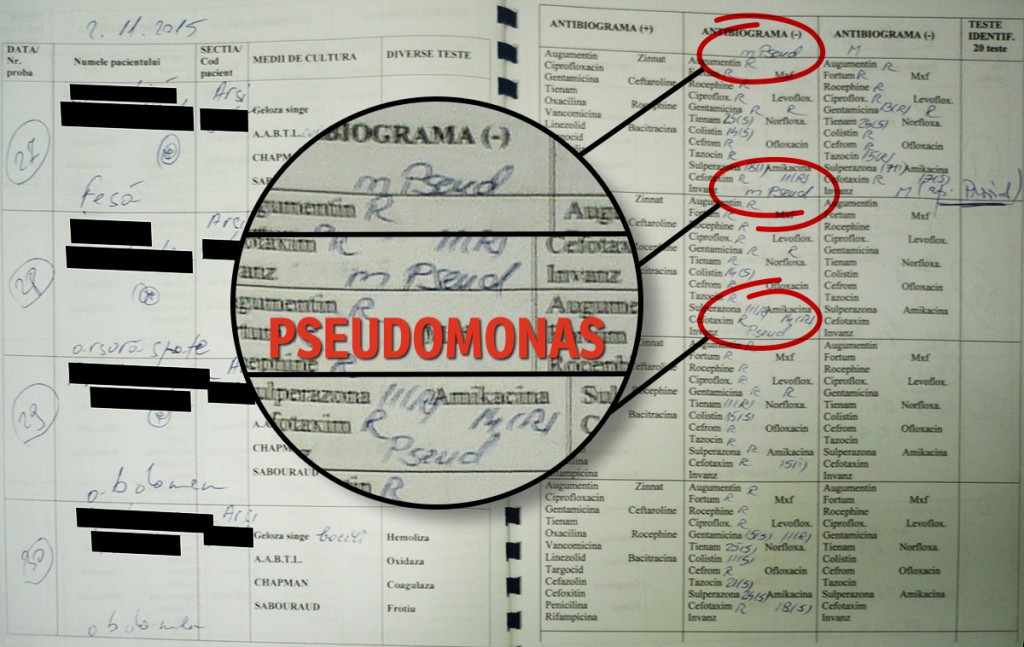 2.11.2015
DATA/ Nr. proba
Numele pacientului
SECTIA/ Cod pacient
MEDII DE CULTURA
DIVERSE TESTE
27
Arși
Geloza singe
A.A.B.T.L.
CHAPM
SAB
Fesă
28
Arși
arsură spate
29
A.A
CHAPM
SABOURAUD
abdomen
30
Arși
Geloza singe
Hemoliza
A.A.B.T.L.
Oxidaza
CHAPMAN
Coagulaza
SABOURAUD
Frotiu
abdomen
BIOGRAMA (-)
m Pseud
gumentin R
Aug
otaxim R 11(R)
Cefota
anz. m Pseud
Invanz
gumentin R
Augume
PSEUDOMONAS
ephine R
Rocephin
ulperazona 11(R) Amikacina
Sul
Cefotaxim R 14(R)
Pseud
ntin R
ANTIBIOGRAMA (+)
ANTIBIOGRAMA (-)
ANTIBIOGRAMA (-)
TESTE IDENTIF. 20 teste
m Pseud
M
Augmentin Zinnat
Ciprofloxacin
Gentamicina Ceftaroline
Tienam
Oxacilina Rocephine
Vancomicina
Linezolid Bacitracina
Augumentin R
Rocephine R
Ciproflox. R Levoflox.
Gentamicina R R
Tienam 25(S) Norfloxa.
Colistin 14(S)
Cefrom R Ofloxacin
Tazocin R
Amikacina
Cefotaxim R 11(R)
Invanz m Pseud
Augumentin R
Fortum R Mxf
Rocephine R
Ciproflox. R Levoflox.
Tienam Norfloxa.
Colistin R
Cefrom R Ofloxacin
Tazocin 15(R)
Sulperazona Amikacina
Cefotaxim R
Invanz
M
Zinnat
Ceftaroline
Rocephine
Bacitracina
Augumentin R
Fortum R Mxf
Rocephine R
Ciproflox. R Levoflox.
Gentamicina R R
Tienam R Norfloxa.
Colistin 14(S)
Ofloxacin
Tazocin R
Sulperazona 11(R) Amikacina
Cefotaxim R 14(R)
Pseud
Augumentin
Fortum Mxf
Rocephine
Ciproflox. Levoflox.
Gentamicina
Tienam Norfloxa.
Colistin
Cefrom Ofloxacin
Tazocin
Sulperazona Amikacina
Cefotaxim
Invanz
Zinnat
Ceftaroline
Rocephine
Bacitracina
Augumentin R
Fortum R Mxf
Rocephine R
Ciproflox. R Levoflox.
Gentamicina R R
Tienam 11(R) Norfloxa.
Colistin 15(S)
Cefrom R Ofloxacin
Tazocin R
Sulperazona R Amikacina
Cefotaxim R 15(i)
Invanz
Augumentin
Fortum Mxf
Rocephine
Ciproflox. Levoflox.
Gentamicina
Tienam Norfloxa.
Colistin
Cefrom Ofloxacin
Tazocin
Sulperazona Amikacina
Cefotaxim
Invanz
Augmentin Zinnat
Ciprofloxacin
Gentamicina Ceftaroline
Tienam
Oxacilina Rocephine
Vancomicina
Linezolid Bacitracina
Targocid
Cefazolin
Cefoxitin
Penicilina
Rifampicina
Augumentin R
Fortum R Mxf
Rocephine R
Ciproflox. R Levoflox.
Gentamicina 11(R)
Tienam 25(S) Norfloxa.
Colistin 11(S)
Cefrom R Ofloxacin
Tazocin 21(S)
Sulperazona 24(S) Amikacina
Cefotaxim R 18(S)
Invanz
Augumentin
Fortum Mxf
Rocephine
Ciproflox. Levoflox.
Gentamicina
Tienam Norfloxa.
Colistin
Cefrom Ofloxacin
Tazocin
Sulperazona Amikacina
Cefotaxim
Invanz